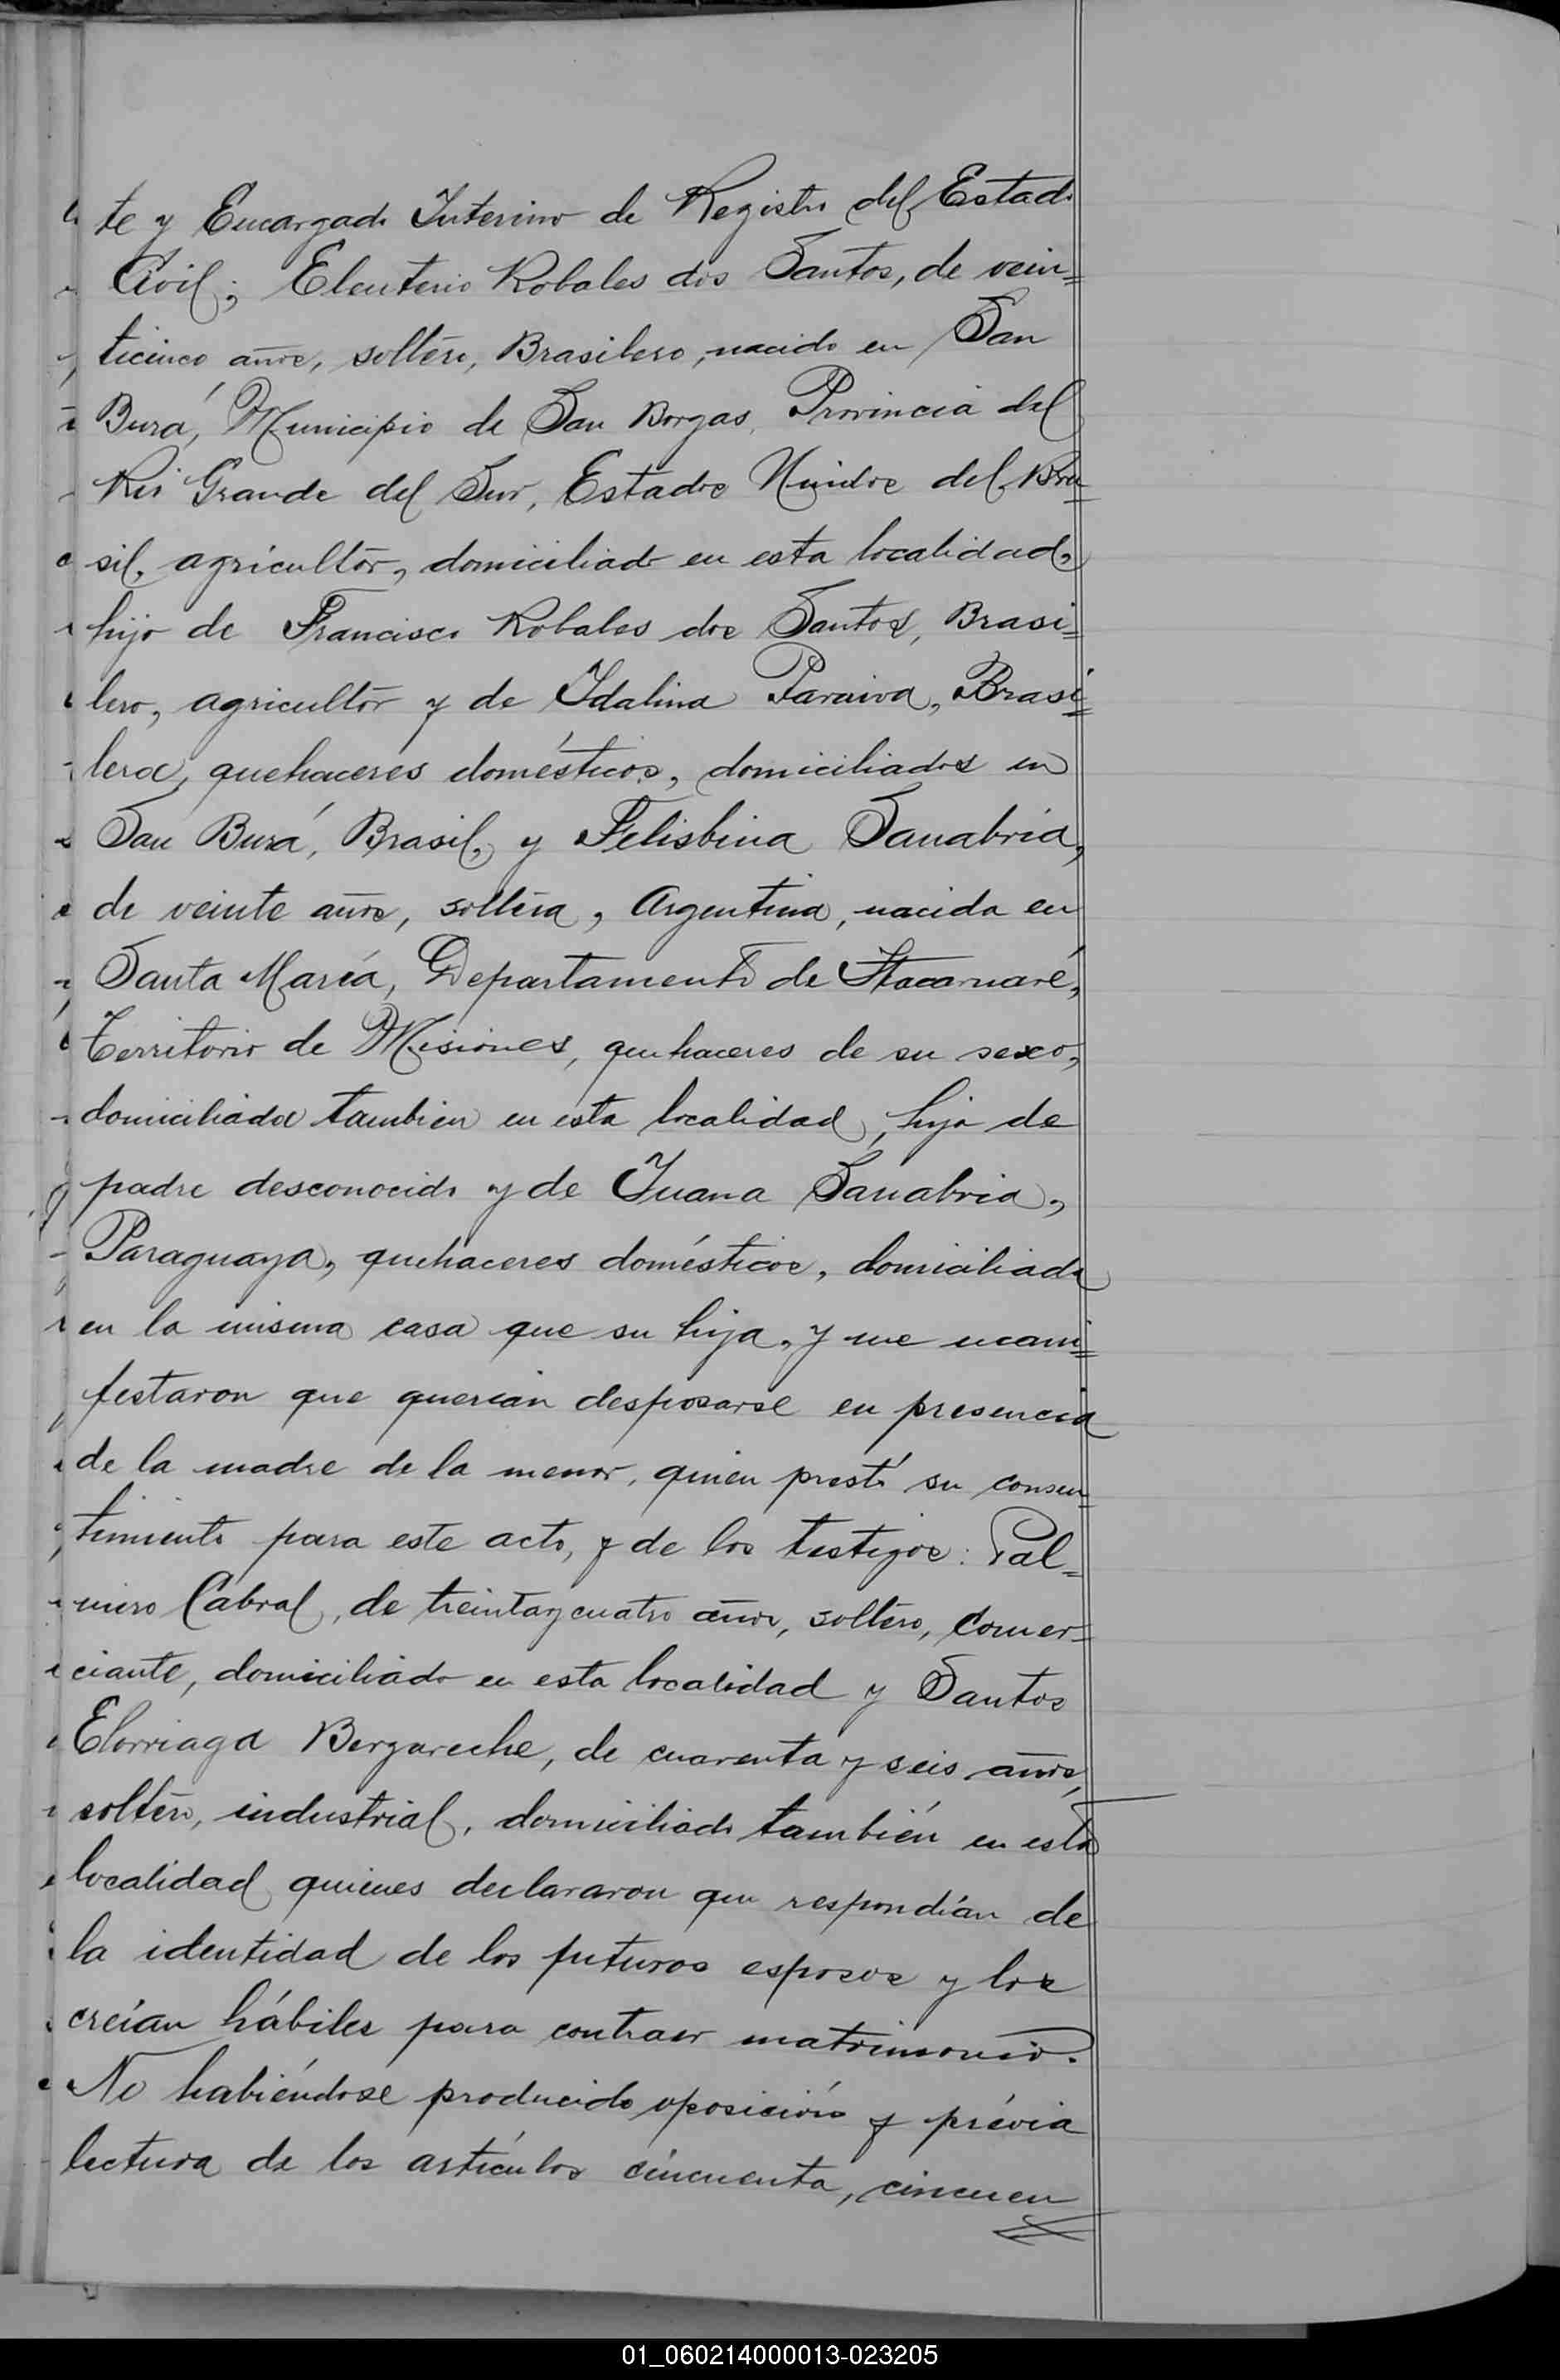 te y Encargado Interino de Registro del Estado
Civil; Eleuterio Robales dos Santos, de vein=
ticinco años, soltero, Brasilero, nacido en San
Burá, Municipio de San Borgas, Provincia del
Rio Grande del Sur, Estados Unidos del Bra=
sil, agricultor, domiciliado en esta localidad,
hijo de Francisco Robales dos Santos, Brasi=
lero, agricultor y de Idalina Paraiva, Brasi=
lera, quehaceres domésticos, domiciliados en
San Burá, Brasil, y Felisbina Sanabria,
de veinte años, soltera, Argentina, nacida en
Santa María, Departamento de Itacaruaré,
Territorio de Misiones, quehaceres de su sexo,
domiciliada tambien en esta localidad, hija de
padre desconocido y de Juana Sanabria,
Paraguaya, quehaceres domésticos, domiciliada
en la misma casa que su hija, y me mani=
festaron que querían desposarse en presencia
de la madre de la menor, quien prestó su consen=
timiento para este acto, y de los testigos: Pal=
miro Cabral, de treintaycuatro años, soltero, comer=
ciante, domiciliado en esta localidad y Santos
Elorriaga Bergareche, de cuarenta y seis años,
soltero, industrial, domiciliado también en esta
localidad quienes declararon que respondían de
la identidad de los futuros esposos y los
creían hábiles para contraer matrimonio.
No habiéndose producido oposición y prévia
lectura de los artículos cincuenta, cincuen
01_060214000013-023205